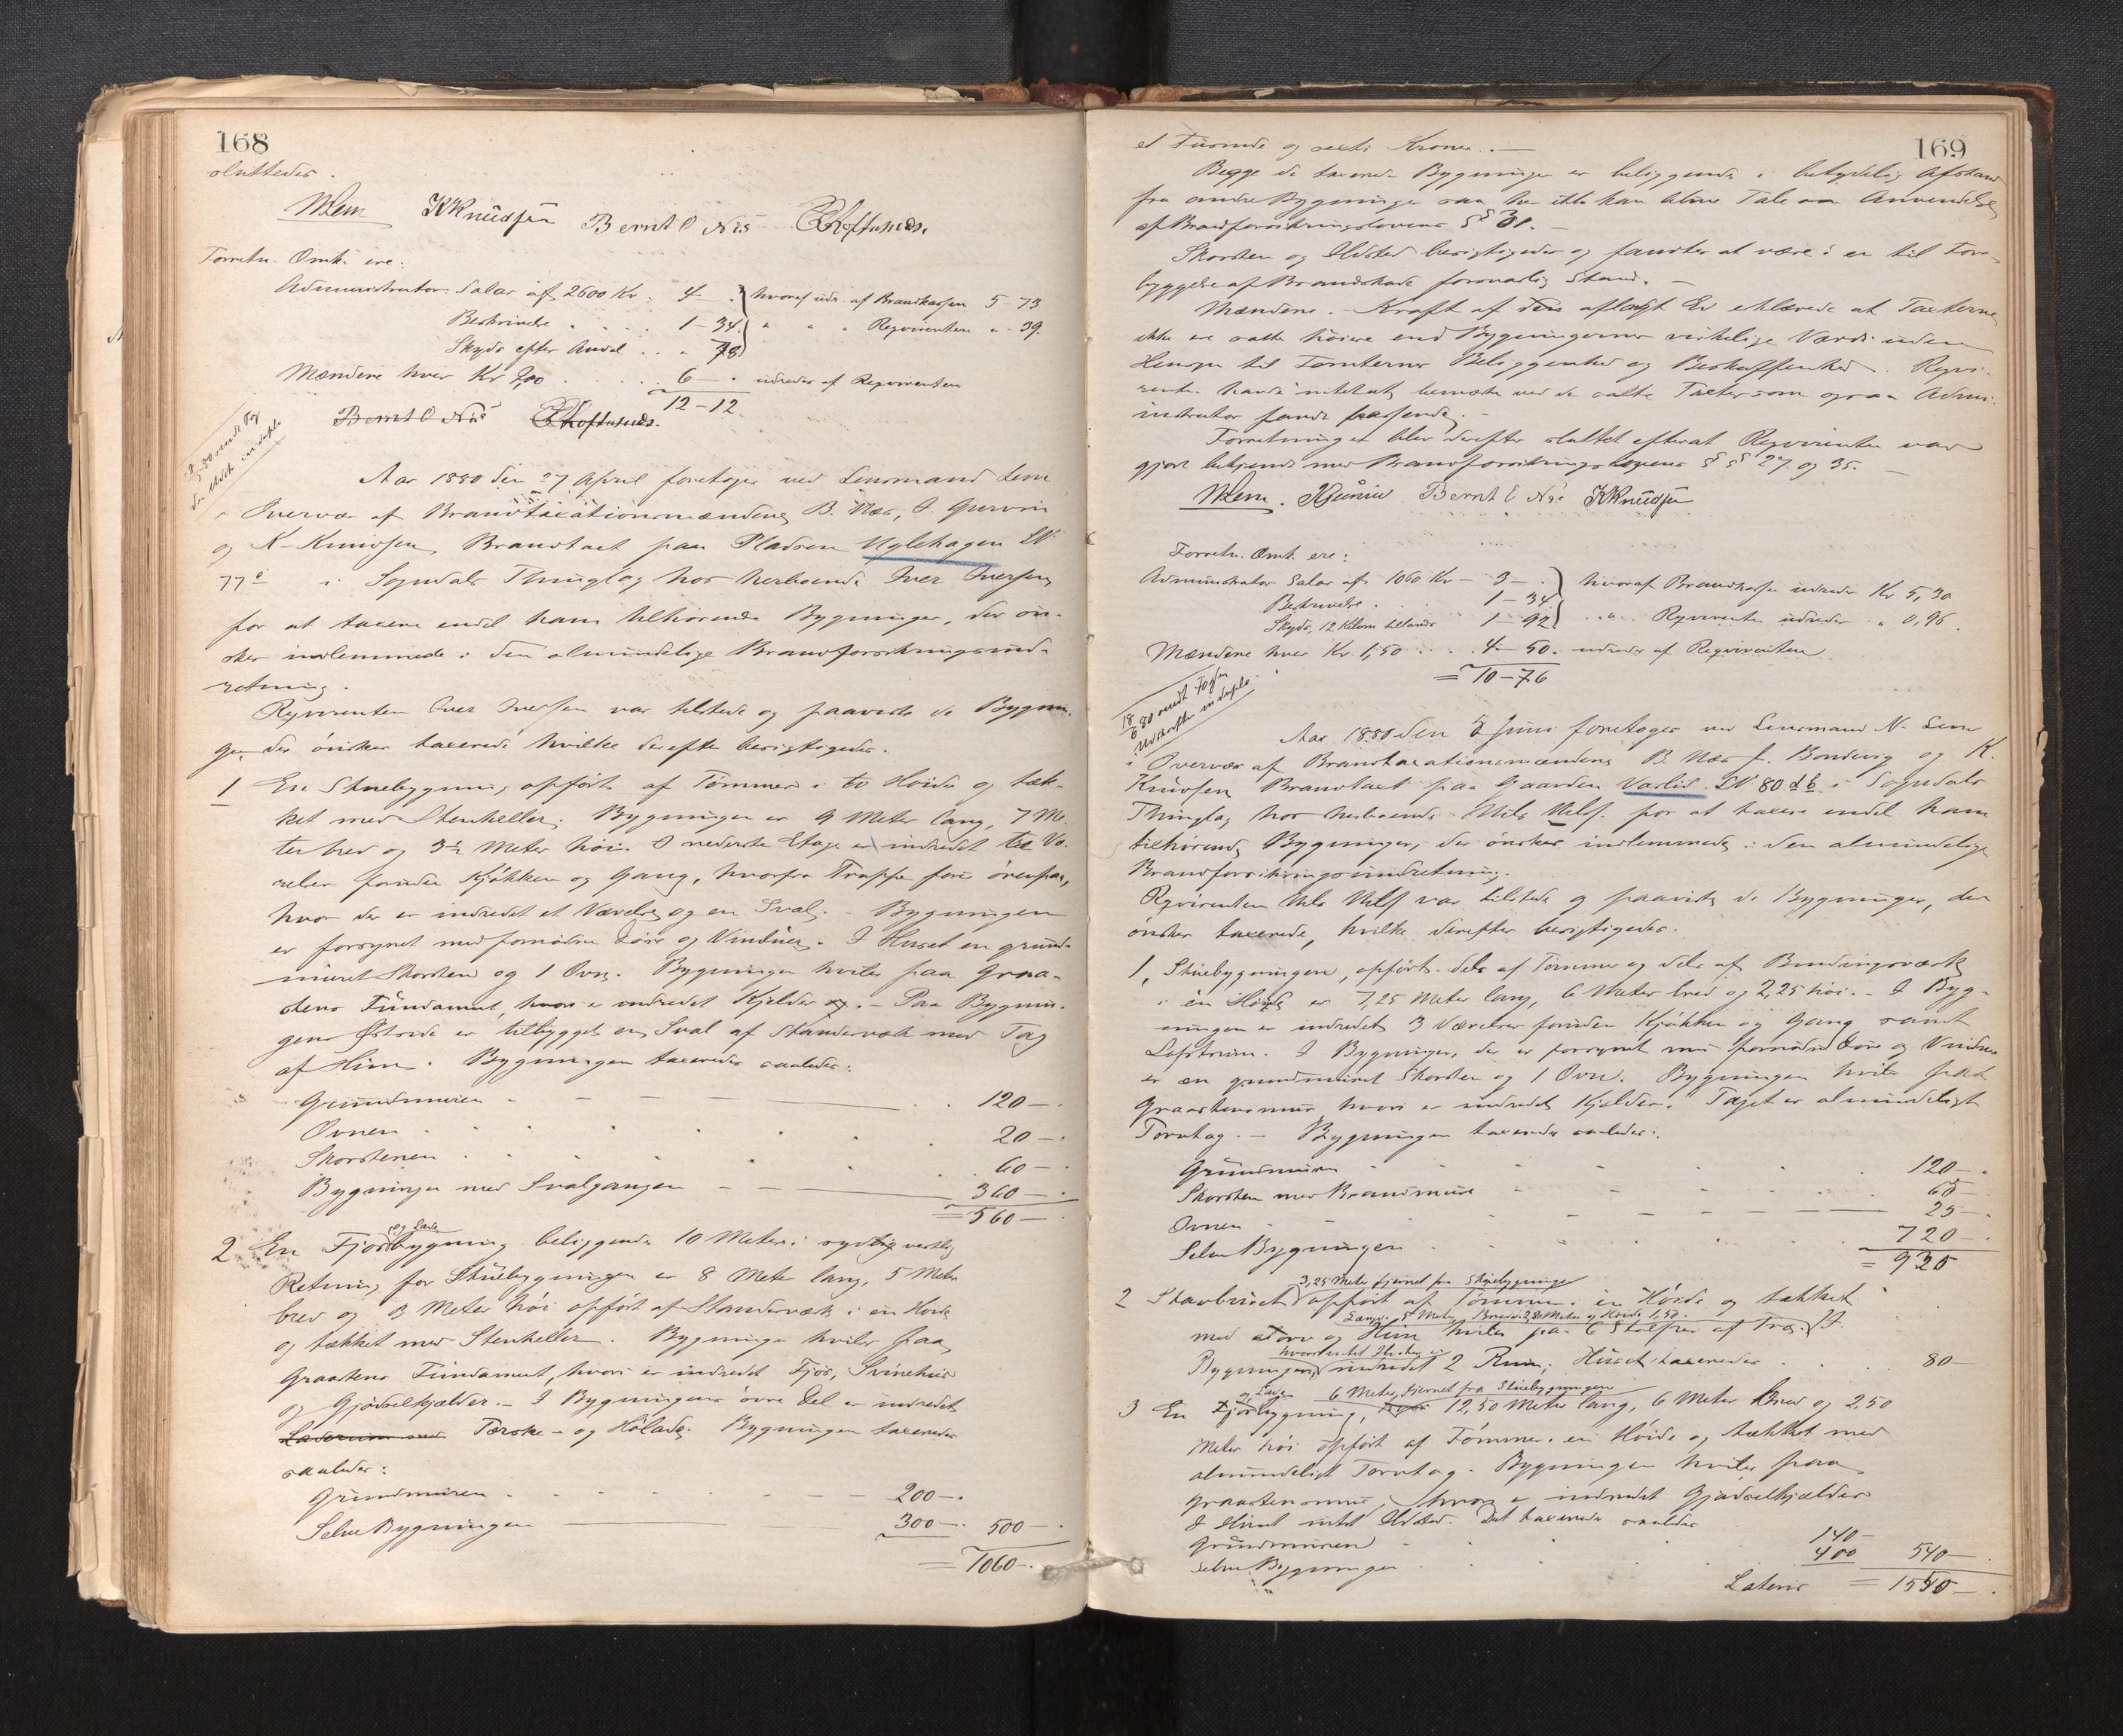 168
sluttedes.
NLem KKnudsen Bernt O Næs
Forretn. Omk. ere:
Administrator Salar af 2600 Kr: 4 — . hvoraf udr. af Brandkassen 5 - 73
Beskrivelse . . . 1 - 34. " " " Reqvirenten " - 39.
Skyds efter Andel . . " 78
Mændene hver Kr 2,00 . . . . . 6 — . udredes af Reqvirenten
12 - 12
Bernt O Næs
Aar 1880 den 27 April foretoges ved Lensmand Lem
i Overvær af Brandtaxationsmændene B. Næs, J. Gurvin
og K. Knudsen, Brandtaxt paa Pladsen Uglehagen LN
77 i Sogndals Thinglag hos herboende Iver Iversen
for at taxere endel ham tilhørende Bygninger, der øn-
sker indlemmede i den almindelige Brandforsikringsind-
retning.
Reqvirenten Iver Iversen var tilstede og paaviste de Bygnin-
ger, der ønskes taxerede hvilke derefter besigtigedes.
1 En Stuebygning opført af Tømmer i to Høider og tæk-
ket med Stenheller. Bygningen er 9 Meter lang, 7 Me-
ter bred og 3½ Meter høi. I nederste Etage er indredet tre Væ-
relser foruden Kjøkken og Gang, hvorfra Trappe fører ovenpaa,
hvor der er indredet et Værelse og en Sval. - Bygningen
er forsynet med fornødne Døre og Vinduer. I Huset en grund-
muret Skorsten og 1 Ovn. Bygningen hviler paa Graa-
stens Fundament, hvori er indredet Kjelder. - Paa Bygnin-
gens Østside er tilbygget en Sval af Standerværk med Tag
af Hun. Bygningen taxeredes saaledes:
Grundmuren 120 —
Ovnen 20 —
Skorstenen 60 —
Bygningen med Svalgangen 360 —
= 560 —
og Lade
2 En Fjøsbygning beliggende 10 Meter i sydlig vestlig
Retning for Stuebygningen er 8 Meter lang, 5 Meter
bred og 3 Meter høi opført af Standerværk i en Høide
og tækket med Stenheller. Bygningen hviler paa
Graastens Fundament, hvori er indredet Fjøs, Svinehus
og Gjødselkjælder. - I Bygningens øvre Del er indredet
Laderum med Tærske- og Hølade. Bygningen taxeredes
saaledes:
Grundmuren 200 —.
Selve Bygningen 300 —. 500 —.
= 1060 —.
169
et Tusinde og sexti Kroner. —
Begge de taxerede Bygninger er beliggende i betydelig Afstand
fra andre Bygninger saa her ikke kan blive Tale om Anvendelse
af Brandforsikringslovens §§ 31. —
Skorsten og Ildsted besigtigedes og fandtes at være i en til Fore-
byggelse af Brandskade forsvarlig Stand. —
Mændene i Kraft af den aflagt Ed erklærede at Taxterne
ikke ere satte høiere end Bygningernes virkelige Værdi uden
Hensyn til Tomternes Beliggenhed og Beskaffenhed. Reqvi-
renten havde intet at bemærke ved de satte Taxter som ogsaa Admi-
nistrator fandt passende. -
Forretningen blev derefter sluttet efterat Reqvirenten var
gjort bekjendt med Brandforsikringslovens §§ 27 og 35. —
NLem. JGurvin Bernt O Næs KKnudsen
Forretn. Omk. ere:
Administrator Salar af 1060 Kr — 3 — . hvoraf Brandkassen udreder Kr 5,30
Beskrivelse . . 1 - 34 " Reqvirenten udreder " 0,96
Skyds, 12 Kilom tillands 1 - 92
Mændene hver Kr. 1,50 . . . 4 - 50. udredes af Reqvirenten
= 10 - 76
Aar 1880 den 8 Juni foretoges ved Lensmand N. Lem
i Overvær af Brandtaxationsmændene B. Næs J. Bondevig og K.
Knudsen Brandtaxt paa Gaarden Varlid LN 80 i Sogndals
Thinglag hos herboende Nils Nils. for at taxere endel ham
tilhørende Bygninger, der ønskes indlemmede i den almindelige
Brandforsikringsindretning.
Reqvirenten Nils Nils var tilstede og paaviste de Bygninger, der
ønskes taxerede, hvilke derefter besigtigedes.
1, Stuebygningen, opført dels af Tømmer og dels af Bindingsværk
i en Høide er 7,25 Meter lang, 6 Meter bred og 2,25 høi. - I Byg-
ningen er indredet 3 Værelser foruden Kjøkken og Gang samt
Loftsrum. I Bygningen, der er forsynet med fornødne Døre og Vinduer
er en grundmuret Skorsten og 1 Ovn. Bygningen hviler paa
Graastensmur hvori er indredet Kjelder. Taget er almindeligt
Torvtag. - Bygningen taxeredes saaledes:
Grundmuren 120 —
Skorsten med Brandmure 65 —
Ovnen 25 —
Selve Bygningen 720 —
= 930
3,25 Meter fjernet fra Stuebygningen
2 Stavburet opført af Tømmer i en Høide og tækket
med Torv og Hun hviler paa 6 Stolper af Træ. I
Bygningen indredet 2 Rum. Huset taxeredes 80 —
og Lade 6 Meter fjernet fra Stuebygningen
3 En Fjøsbygning, 12,50 Meter lang, 6 Meter bred og 2,50
Meter høi opført af Tømmer i en Høide og tækket med
almindeligt Torvtag. Bygningen hviler paa
Graastensmur, hvori er indredet Gjødselkjælder
I Huset intet Ildsted. Det taxeredes saaledes
Grundmuren 140 —
Selve Bygningen 400 540 —
Lateris = 1550 —.